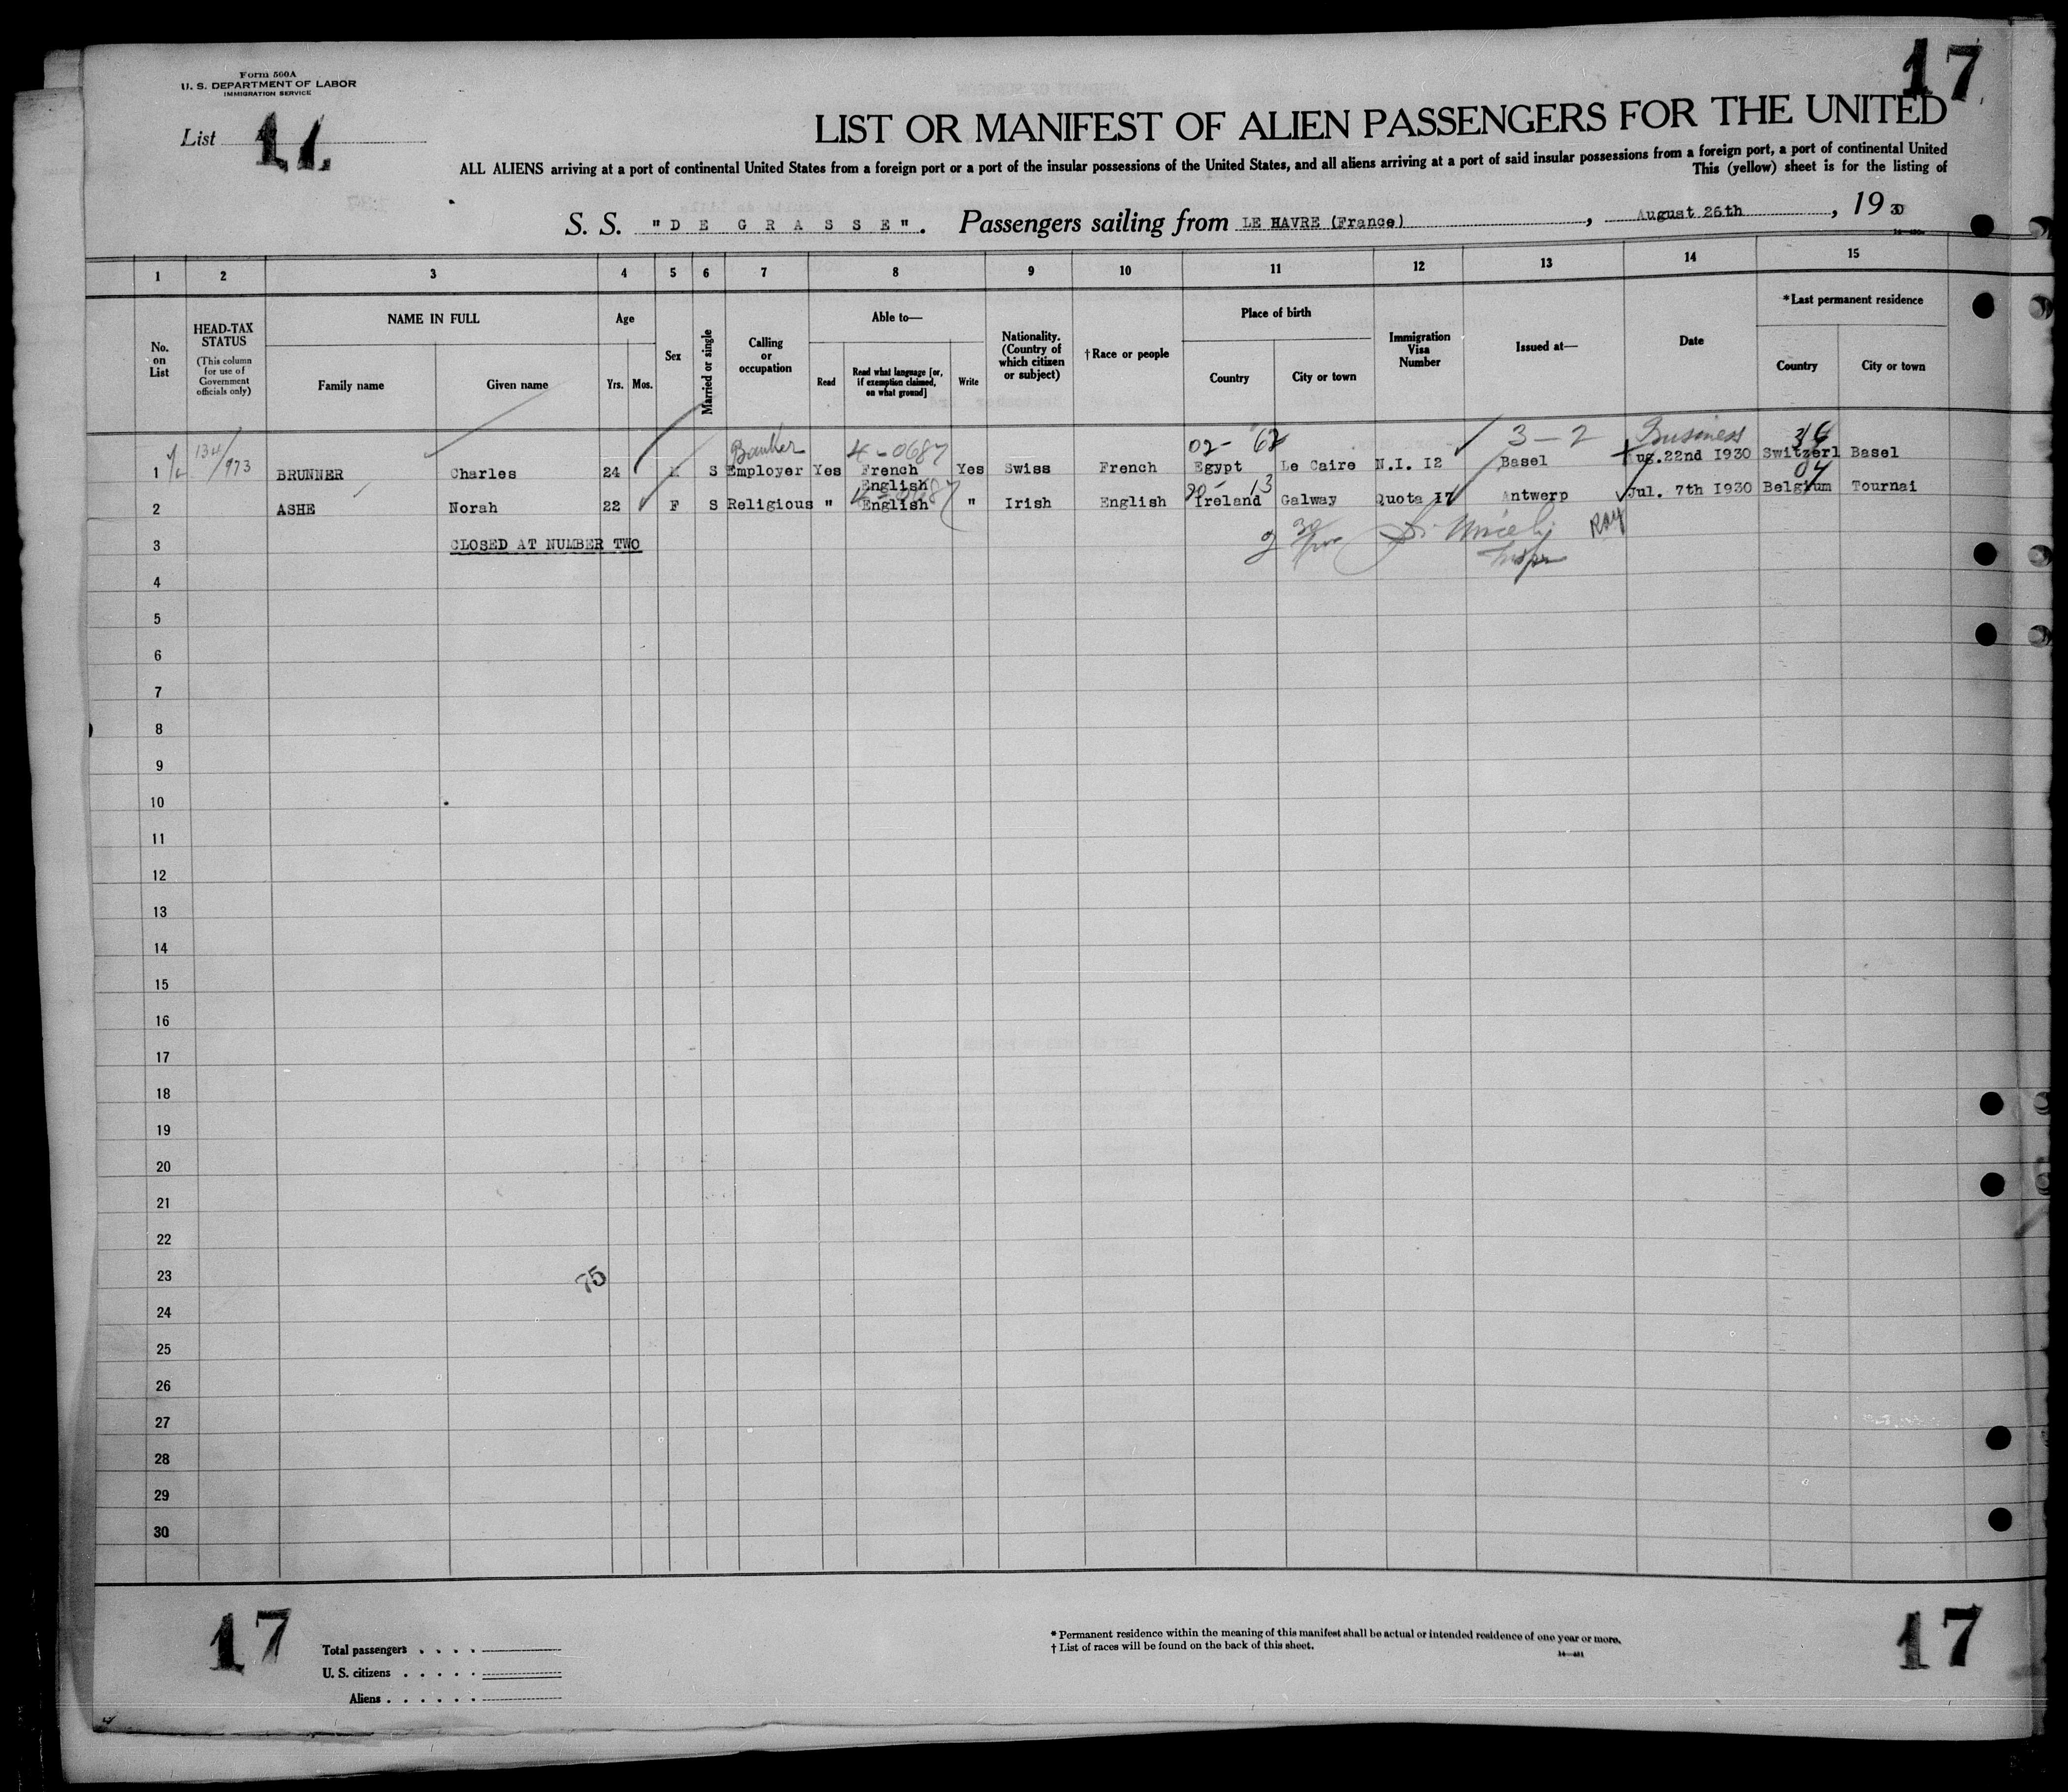 17
Form 500A
U. S. DEPARTMENT OF LABOR
IMMIGRATION SERVICE
List 11
LIST OR MANIFEST OF ALIEN PASSENGERS FOR THE UNITED
ALL ALIENS arriving at a port of continental United States from a foreign port or a port of the insular possessions of the United States, and all aliens arriving at a port of said insular possessions from a foreign port, a port of continental United
This (yellow) sheet is for the listing of
S. S. "DE GRASSE". Passengers sailing from LE HAVRE (France), August 26th, 1930
1 2 3 4 5 6 7 8 9 10 11 12 13 14 15
No. on List
HEAD-TAX STATUS (This column for use of Government officials only)
NAME IN FULL
Family name Given name
Age
Yrs. Mos.
Sex
Married or single
Calling or occupation
Able to—
Read
Read what language [or, if exemption claimed, on what ground]
Write
Nationality. (Country of which citizen or subject)
†Race or people
Place of birth
Country City or town
Immigration Visa Number
Issued at—
Date
*Last permanent residence
Country City or town
134/973 Banker 4-0687 02- 62 3-2 Business
1 BRUNNER Charles 24 S Employer Yes French Yes Swiss French Egypt Le Caire N.I. I2 Basel Aug.22nd I930 Switzerl Basel
English
2 ASHE Norah 22 F S Religious " English " Irish English Ireland Galway Quota I7 Antwerp Jul. 7th I930 Belgium Tournai
3 CLOSED AT NUMBER TWO Ray
4
5
6
7
8
9
10
11
12
13
14
15
16
17
18
19
20
21
22
23
75
24
25
26
27
28
29
30
17
Total passengers . . . .
U. S. citizens . . . . .
Aliens . . . . . .
* Permanent residence within the meaning of this manifest shall be actual or intended residence of one year or more.
† List of races will be found on the back of this sheet.
17